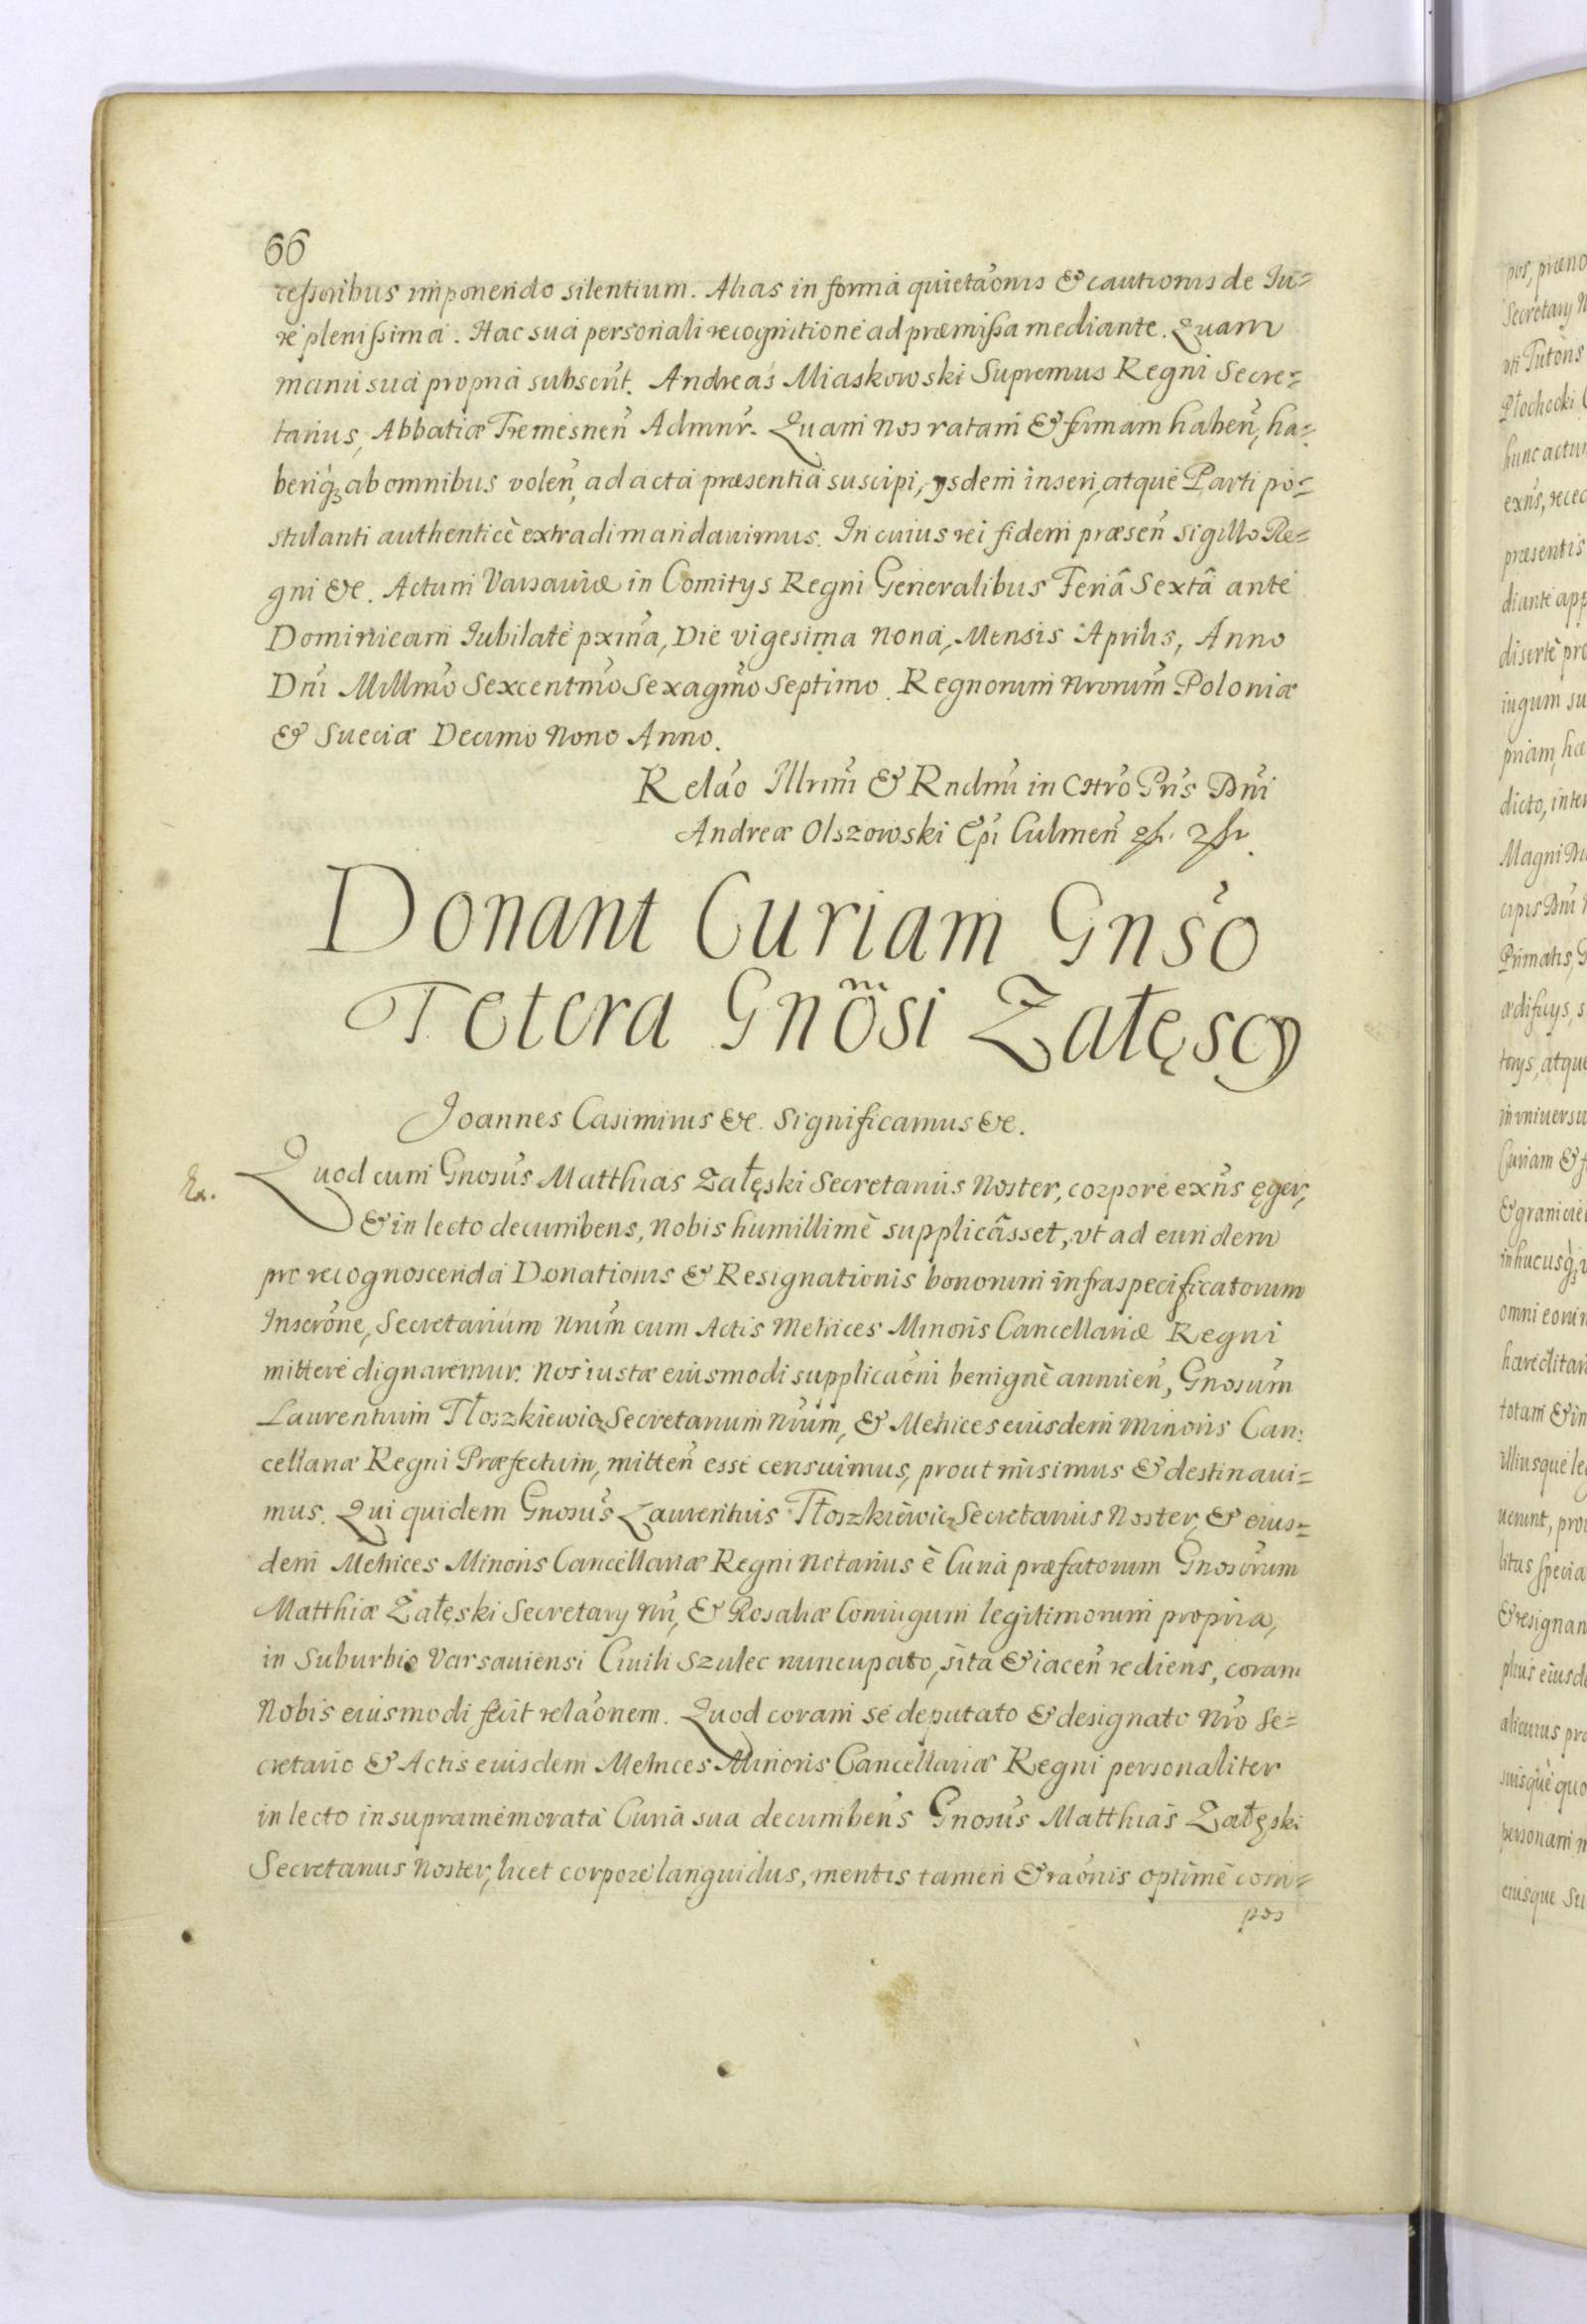 66
cessoribus imponendo silentium. Alias in forma quietãonis & cautionis de Iu=
re plenissima. Hac sua personali recognitione ad præmissa mediante. Quam
manu sua propria subscrt̃. Andreas Miaskowski Supremus Regni Secre=
tarius, Abbatiæ Tremesneñ Admnr̃. Quam nos ratam & firmam habeñ, ha=
beriq̃ ab omnibus voleñ, ad acta præsentia suscipi, ysdem inseri, atque Parti po=
stulanti authenticè extradi mandavimus. In cuius rei fidem præseñ sigillo Re=
gni &c. Actum Varsaviæ in Comitys Regni Generalibus Feriâ Sextâ ante
Dominicam Iubilate pxim̃a, Die vigesima nona, Mensis Aprilis, Anno
Dñi Millm̃o Sexcentm̃o Sexagm̃o Septimo. Regnorum nrorum̃ Poloniæ
& Sueciæ Decimo Nono Anno.
Relão Illrm̃i & Rndm̃i in Chr̃o Pr̃is Dñi
Andreæ Olszowski Ep̃i Culmeñ
Donant Curiam Gnsõ
Tetera Gnõsi Załęscy
Joannes Casimirus &c. Significamus &c.
Ex.
Quod cum Gnosũs Matthias Załęski Secretarius Noster, corpore exñs ęger,
& in lecto decumbens, nobis humillimè supplicâsset, vt ad eundem
pro recognoscenda Donationis & Resignationis bonorum infraspecificatorum
Inscrõne, Secretarium Nrũm cum Actis Metrices Minoris Cancellariæ Regni
mittere dignaremur. Nos iustæ eiusmodi supplicaõni benignè annuieñ, Gnosũm
Laurentium Tłoszkiewicz Secretarium Nrũm, & Metrices eiusdem Minoris Can:
cellariæ Regni Præfectum, mitteñ esse censuimus, prout misimus & destinavi=
mus. Qui quidem Gnosũs Laurentius Tłoszkiewicz Secretarius Noster, & eius=
dem Metrices Minoris Cancellariæ Regni Notarius è Curia præfatorum Gnosõrum
Matthiæ Załęski Secretary Nr̃i, & Rosaliæ Coniugum legitimorum propria,
in Suburbio Varsaviensi Civili Szulec nuncupato, sita & iaceñ rediens, coram
Nobis eiusmodi fecit relaõnem. Quod coram se deputato & designato Nr̃o Se=
cretario & Actis eiusdem Metrices Minoris Cancellariæ Regni personaliter
in lecto in supramemorata Curia sua decumbens Gnosũs Matthias Załęski
Secretarius Noster, licet corpore languidus, mentis tamen & raõnis optimè com=
pos